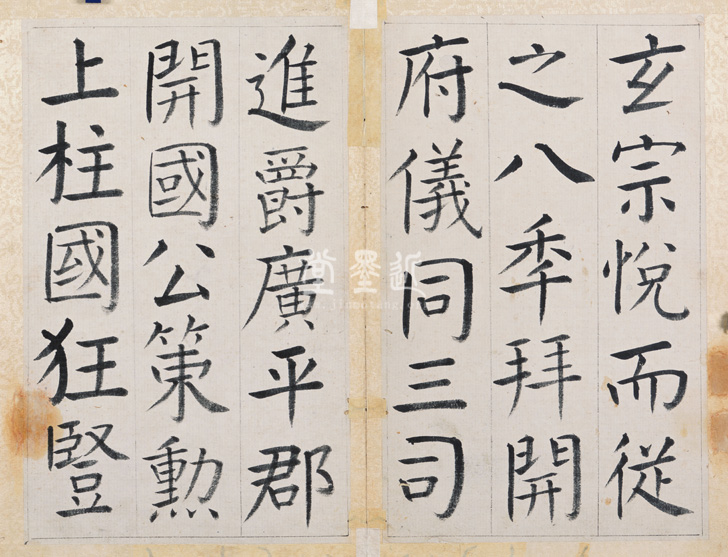 玄宗悅而從
之八秊拜開
府儀同三司
進爵廣平郡
開國公策勳
上柱國狂豎
近墨堂